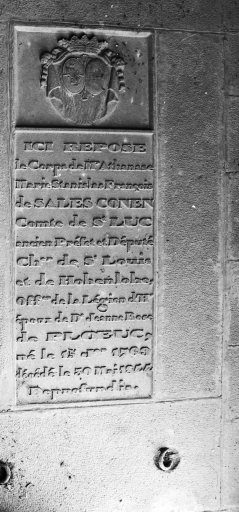 ICI REPOSE
le Corps de Mr Athanase
Marie Stanislas François
de SALES CONEN
Comte de St LUC
ancien Préfet et Député
Chev de St Louis
et de Hohenlohe,
Offer de la Légion d'H
époux de De Jeanne Rose
de PLŒUC,
né le 1er 1769
décédé le 30 Mai
De profundis.
G